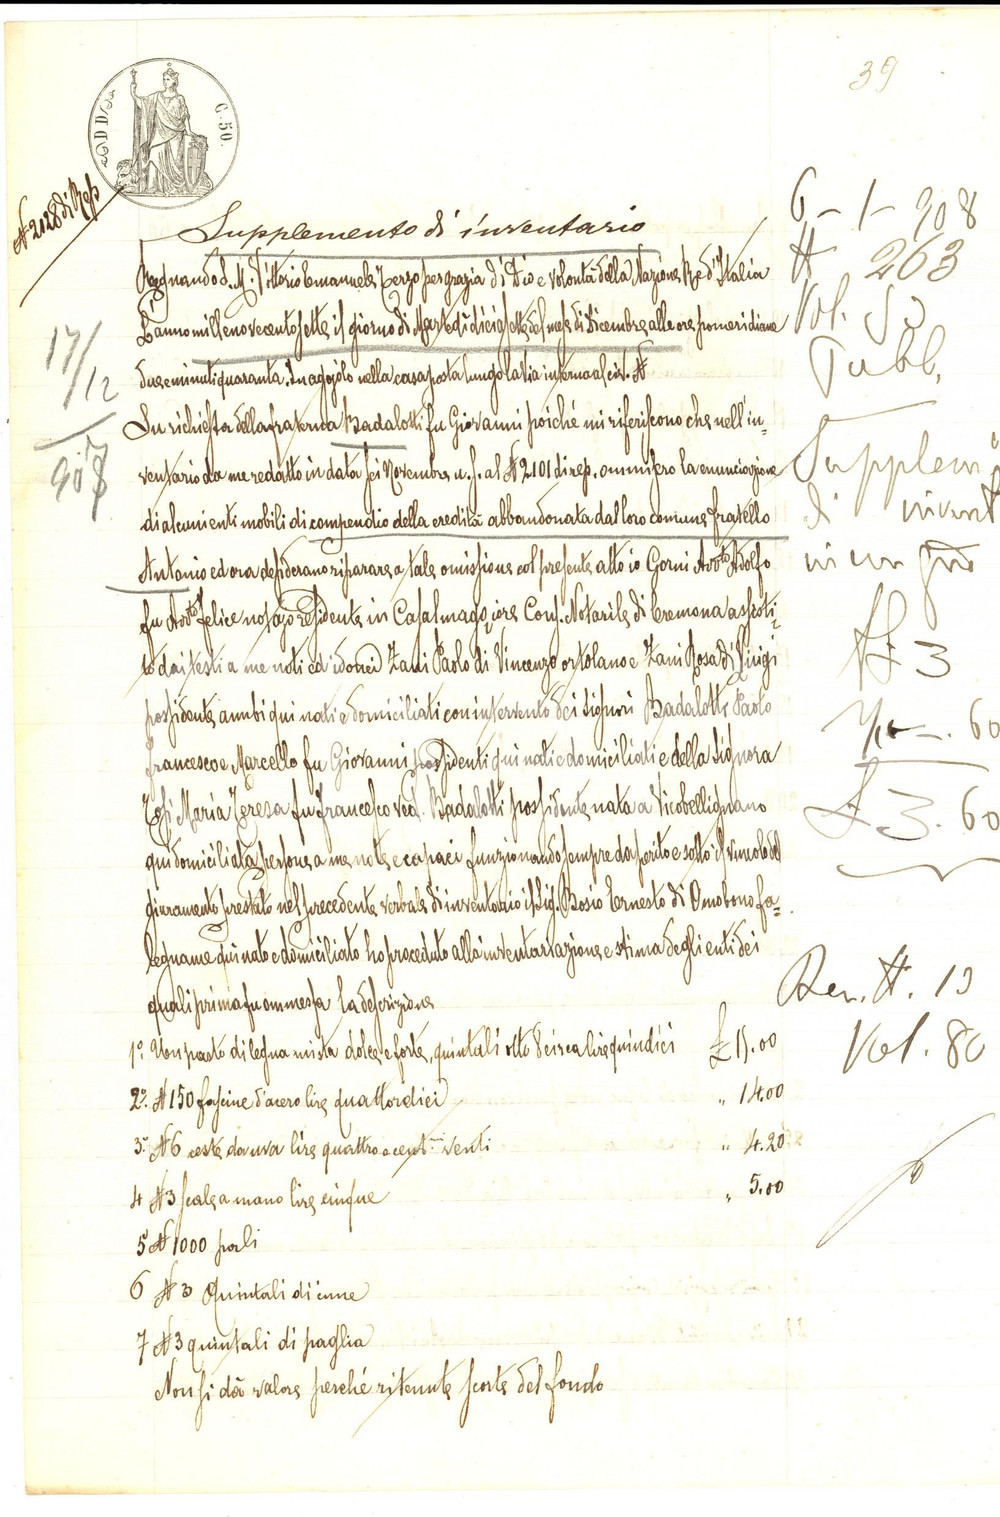 39
C. 50.
N 2128 di Rep
Supplemento di inventario
Regnando S. M. Vittorio Emanuele Terzo per grazia di Dio e volontà della Nazione Re d'Italia
L'anno millenovecentosette il giorno di Martedì diciassette del mese di Dicembre alle ore pomeridiane
due e minuti quaranta. In nella casa posta lungo la via interna al civ. N
Su richiesta della fraterna Badalotti fu Giovanni poiché mi riferiscono che nell'in-
ventario da me redatto in data sei Novembre u. s. al N 2101 di rep. ommisero la enunciazione
di alcuni enti mobili di compendio della eredità abbandonata dal loro comune fratello
Antonio ed ora desiderano riparare a tale omissione col presente atto io Gorni Avvto Adolfo
fu Avvto Felice notajo residente in Casalmaggiore Cons. Notarile di Cremona assisti-
to dai testi a me noti ed idonei Zani Paolo di Vincenzo ortolano e Zani Rosa di Luigi
possidente ambi qui nati e domiciliati con intervento dei Signori Badalotti Paolo
Francesco e Marcello fu Giovanni possidenti qui nati e domiciliati e della Signora
Maria Teresa fu Francesco ved. Badalotti possidente nata a Vicobellignano
qui domiciliata persone a me note e capaci funzionando sempre da perito e sotto il vincolo del
giuramento prestato nel precedente verbale di inventario il Sig. Bosio Ernesto di Omobono fa-
legname qui nato e domiciliato ho proceduto alla inventariazione e stima degli enti dei
quali prima fu ommessa la descrizione
1o. Un pasto di legna mista dolce e forte, quintali otto circa lire quindici £ 15.00
2o. N 150 fascine d'acero lire quattordici " 14.00
3o N 6 ceste da uva lire quattro e cent. venti " 4.20
4 N 3 scale a mano lire cinque " 5.00
5 N 1000 pali
6 N 3 Quintali di
7 N 3 quintali di paglia
Non si dà valore perché ritenute scorte del fondo
17/12
907
6 - 1 - 908
N 263
Vol. 53
Pubb.
Supplem.o
di invent
in un
£ 3
60
£ 3. 60
Rer. N. 13
Vol. 80